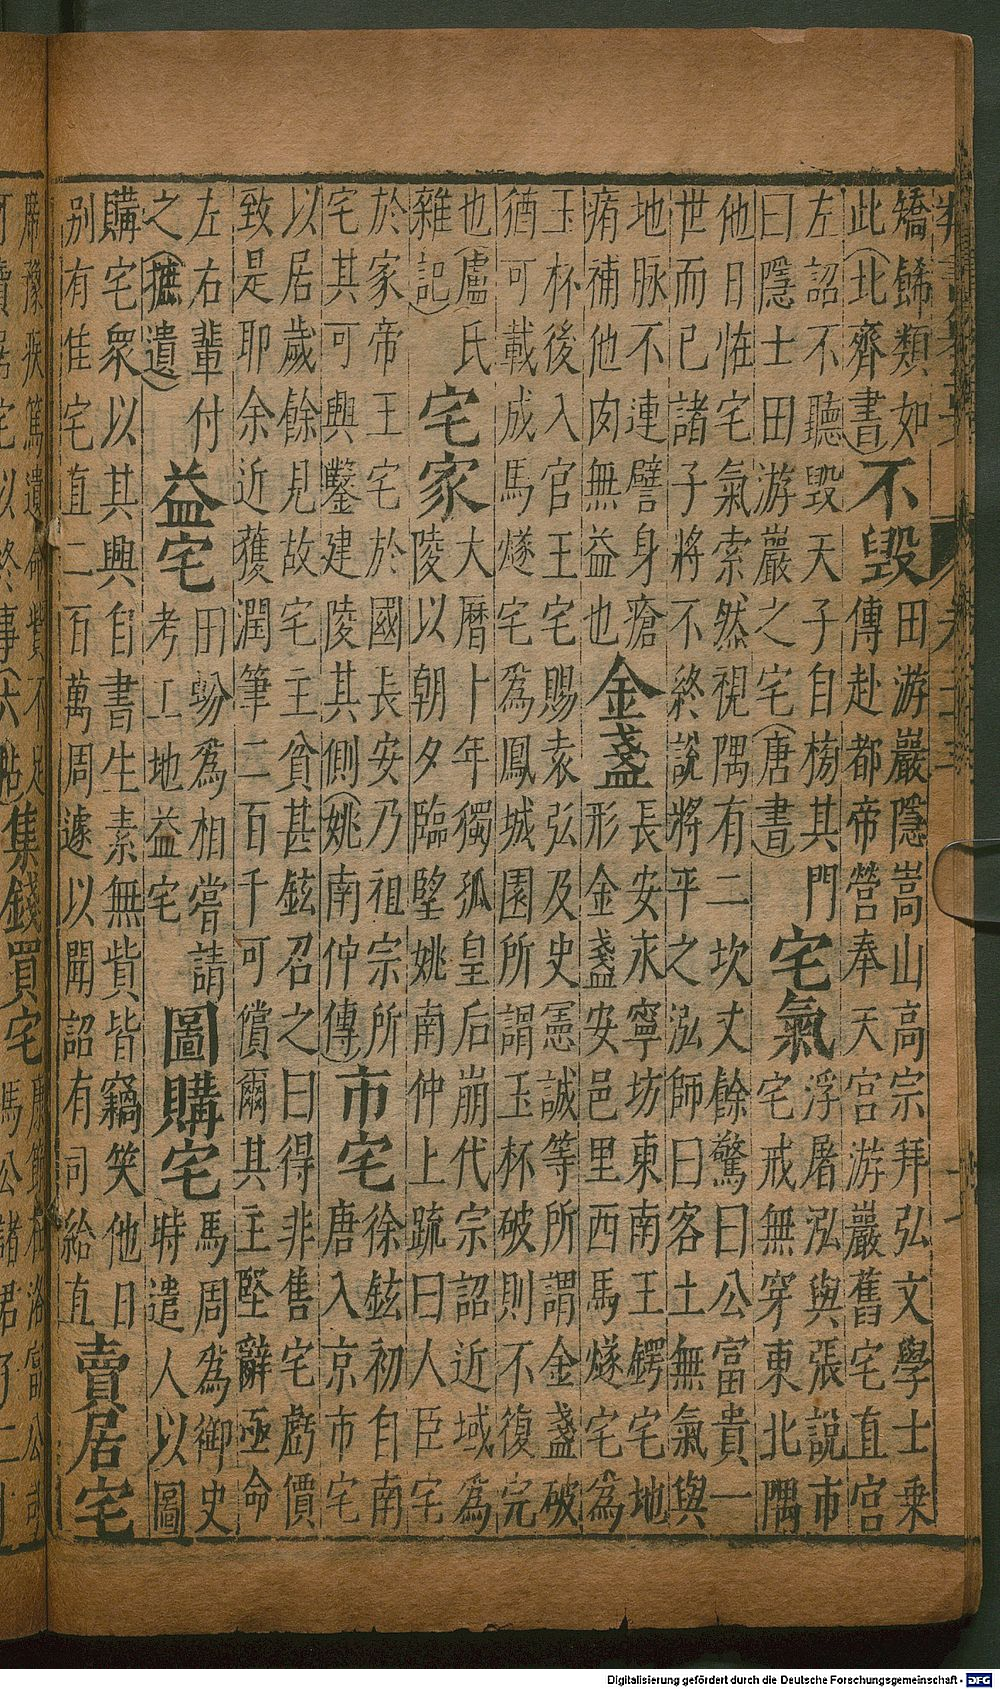 矯餙類如
此(北齊書)
不毀
田游巖隱嵩山高宗拜弘文學士乗
傳赴都帝營奉天宫游巖舊宅直宫
左詔不聽毀天子自榜其門
曰隱士田游巖之宅(唐書)
宅氣
浮屠泓與張說市
宅戒無穿東北隅
他日恠宅氣索然視隅有二坎丈餘驚曰公富貴一
世而已諸子將不終說將平之泓師曰客土無氣與
地脉不連譬身瘡
痏補他肉無益也
金盞
長安永寧坊東南王鍔宅地
形金盞安邑里西馬燧宅為
玉杯後入官王宅賜袁弘及史憲誠等所謂金盞破
猶可載成馬燧宅為鳳城園所謂玉杯破則不復完
也(盧氏
雜記)
宅家
大曆卜年獨孤皇后崩代宗詔近域為
陵以朝夕臨朢姚南仲上疏曰人臣宅
於家帝王宅於國長安乃祖宗所
宅其可興鑿建陵其側(姚南仲傳)
市宅
徐鉉初自南
唐入京市宅
以居歲餘見故宅主貧甚鉉召之曰得非售宅虧價
致是耶余近獲潤筆二百千可償爾其主堅辭亟命
左右輩付
之(摭遺)
益宅
田蚡為相嘗請
考工地益宅
圖購宅
馬周為御史
時遣人以圖
購宅衆以其興自書生素無貲皆竊笑他日
別有隹宅直二百萬周遽以聞詔有司給直
賣居宅
疾篤遺命貲不足
宅以終事(六帖)
集錢買宅
馬公諸君
Digitalisierung gefördert durch die Deutsche Forschungsgemeinschaft - DFG